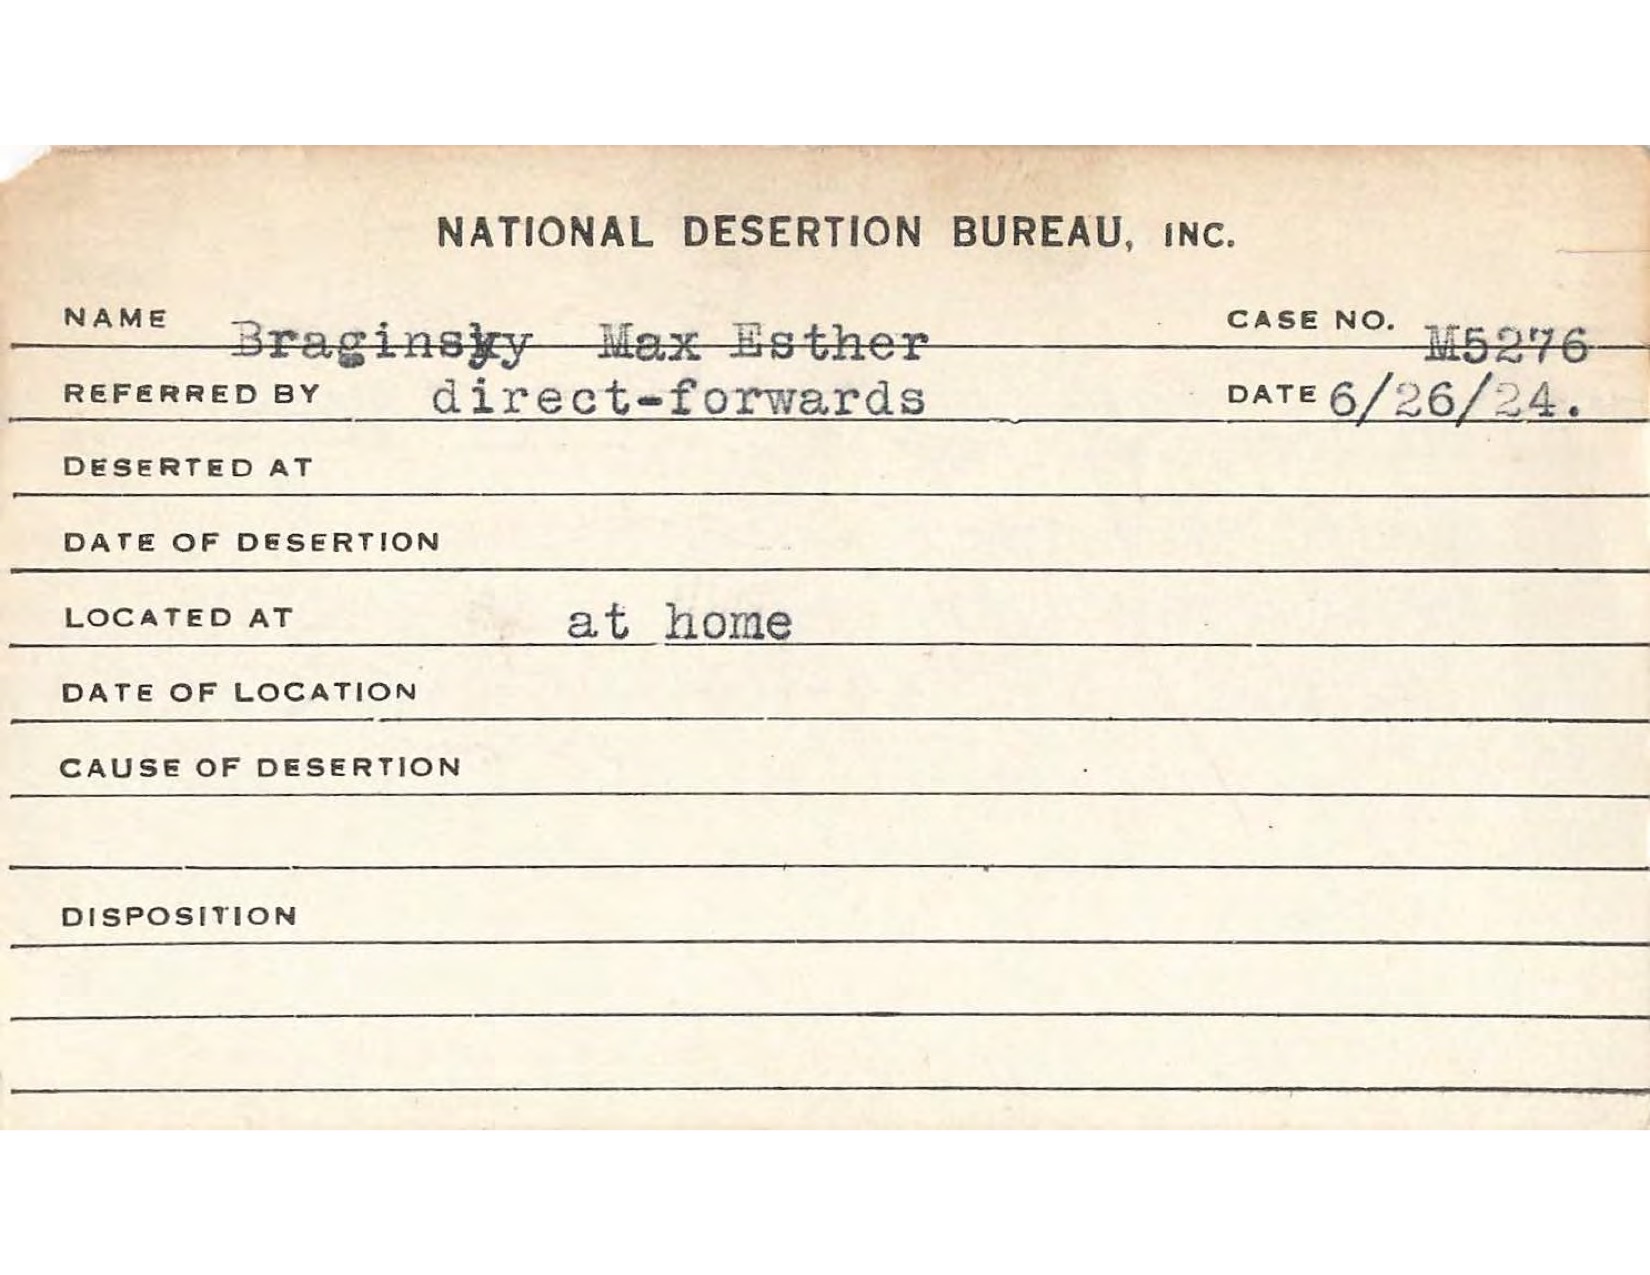 NATIONAL DESERTION BUREAU, INC.
NAME Braginsky Max Esther CASE NO. M5276
REFERRED BY direct-forwards DATE 6/26/24.
DESERTED AT
DATE OF DESERTION
LOCATED AT at home
DATE OF LOCATION
CAUSE OF DESERTION
DISPOSITION